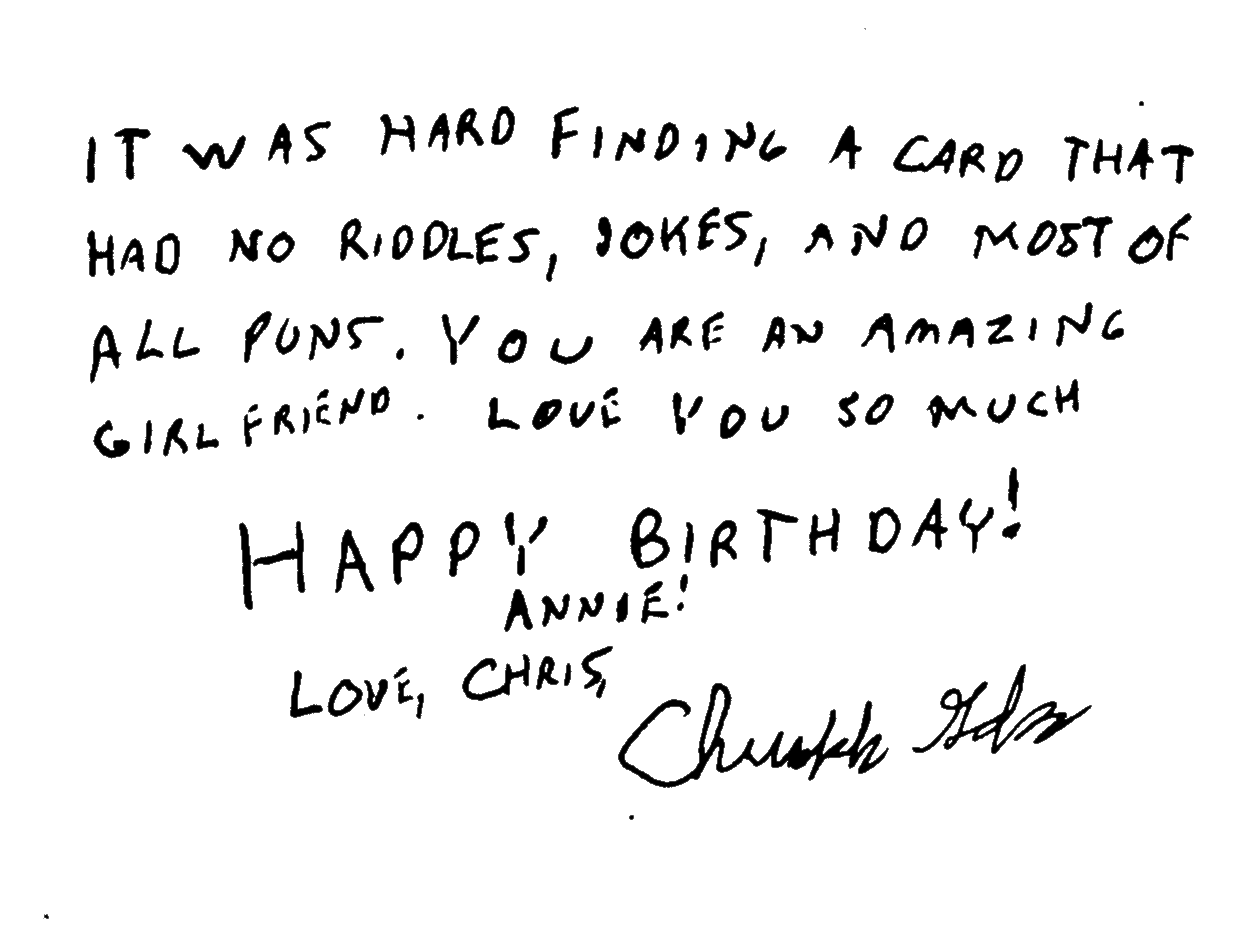 IT WAS HARD FINDING A CARD THAT
HAD NO RIDDLES, JOKES, AND MOST OF
ALL PUNS. YOU ARE AN AMAZING
GIRLFRIEND. LOVE YOU SO MUCH
HAPPY BIRTHDAY!
ANNIE!
LOVE, CHRIS,